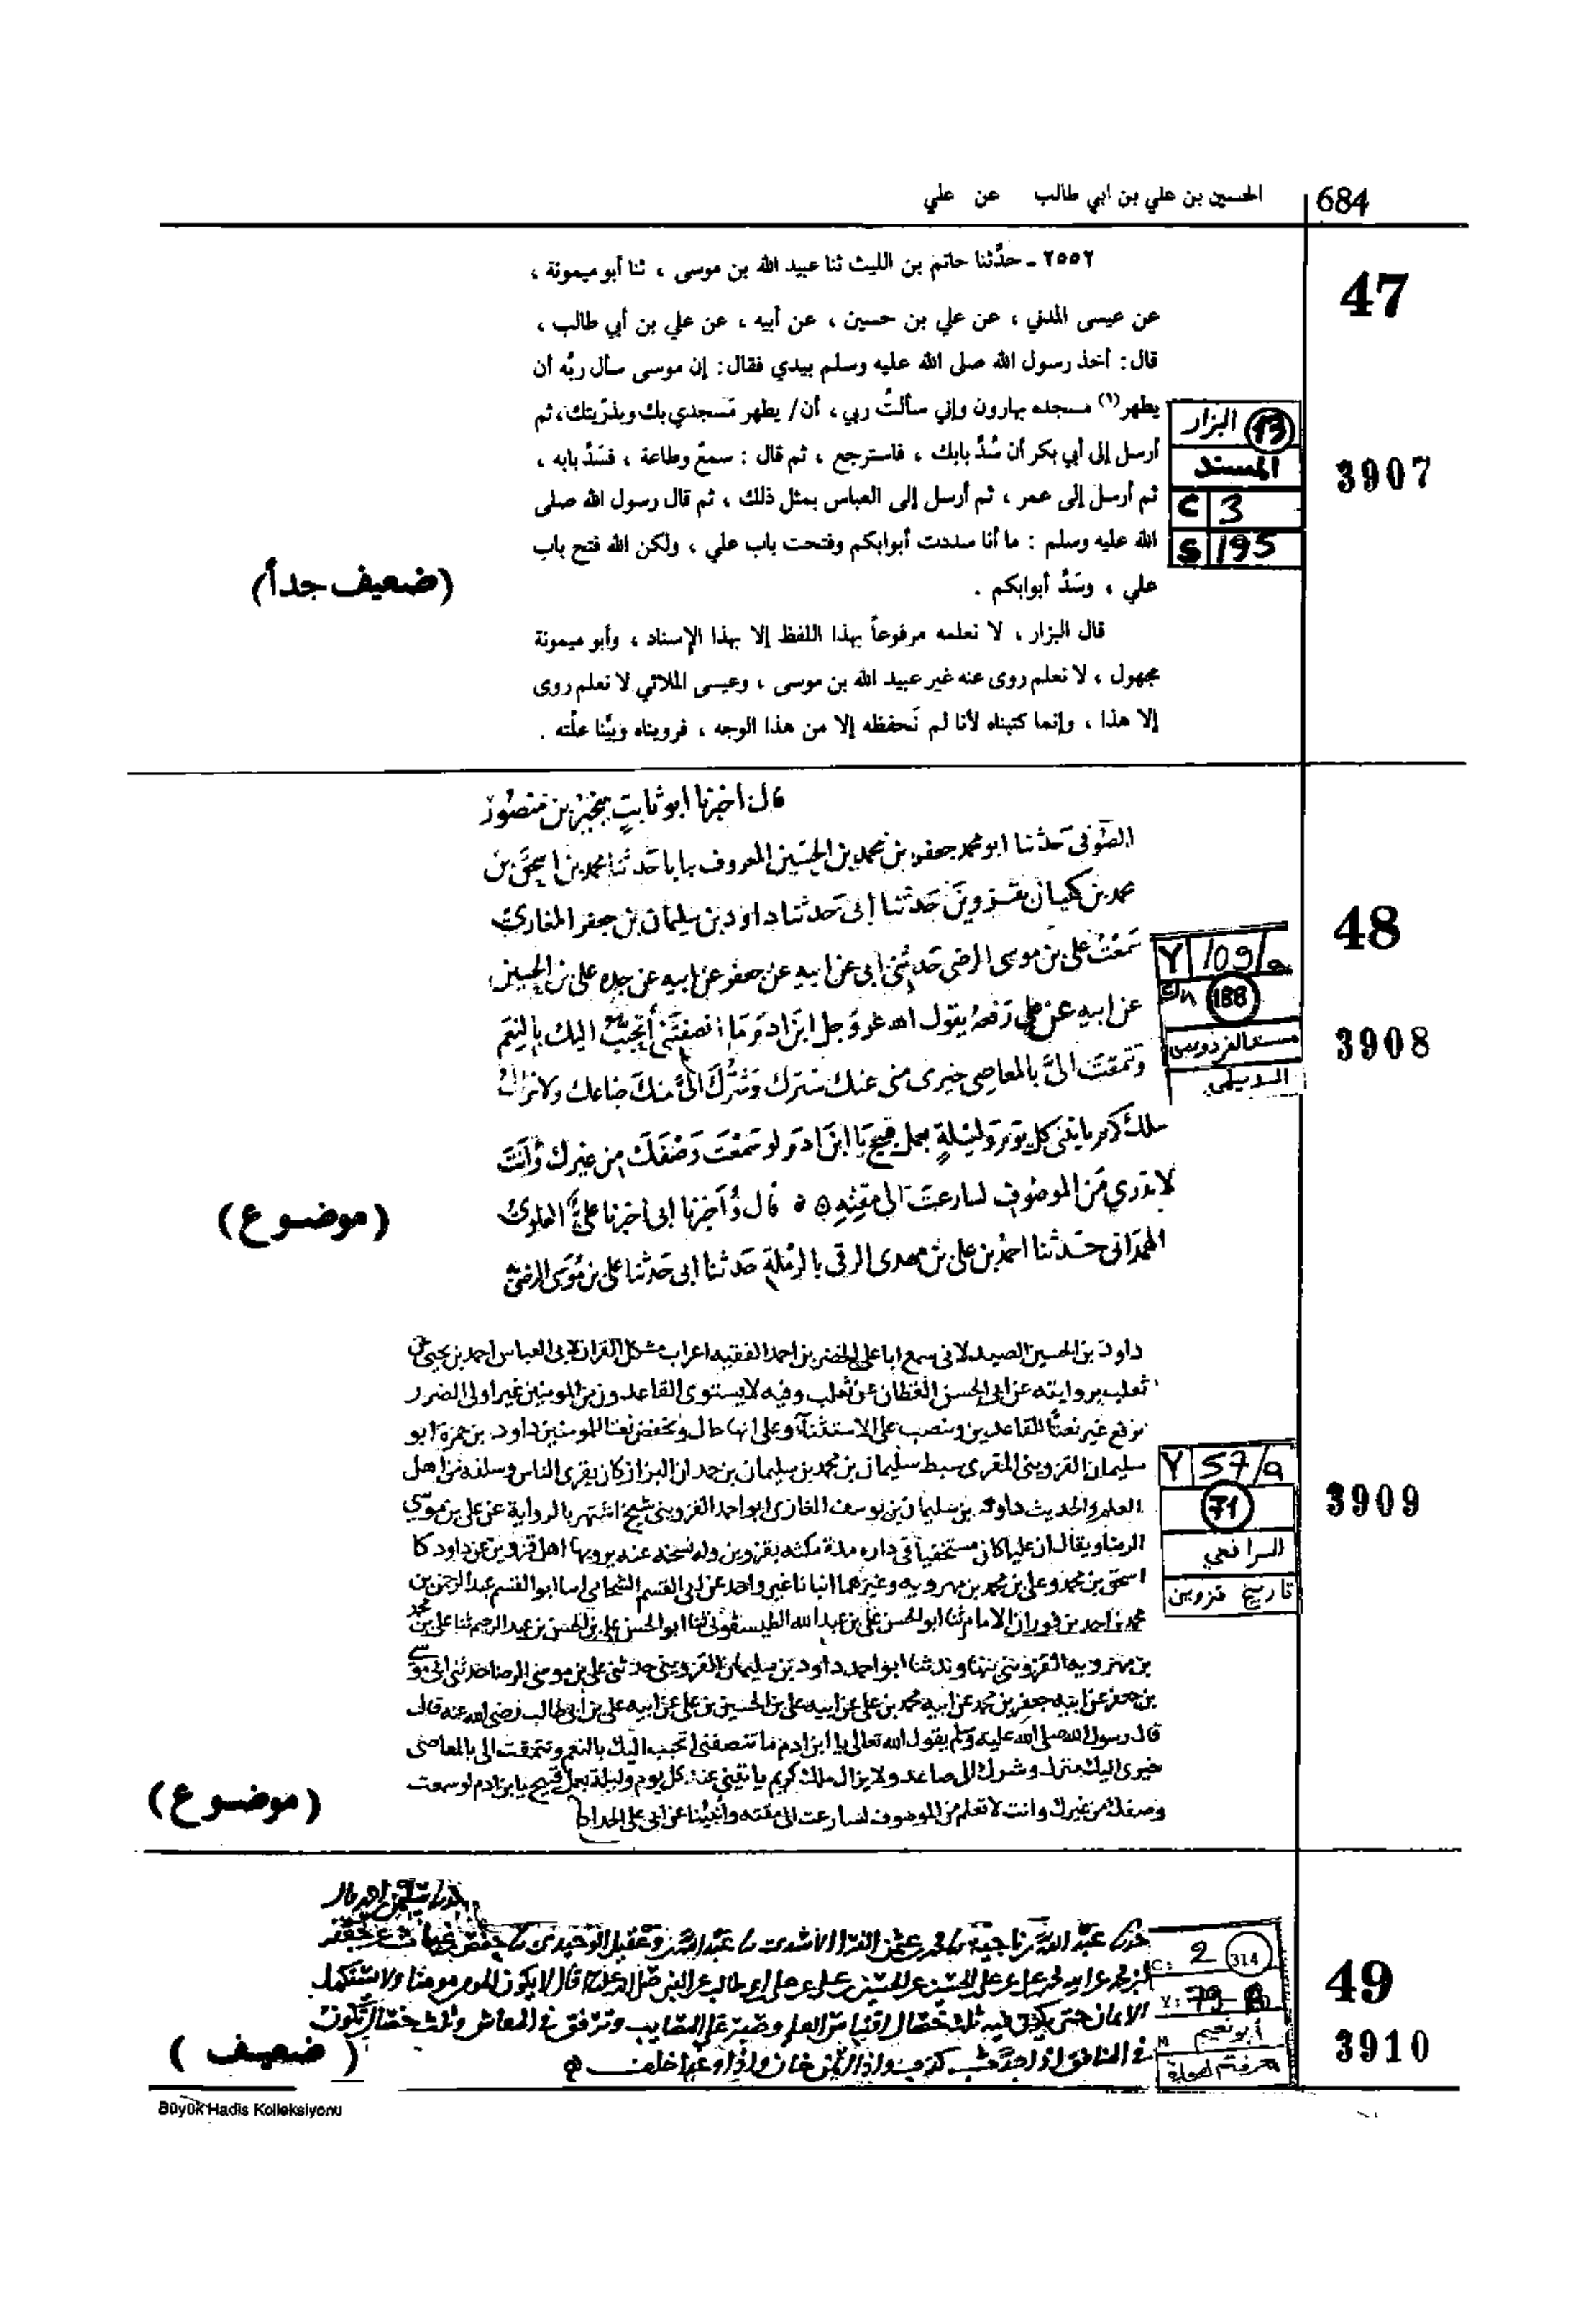 684
الحسين بن علي بن أبي طالب عن علي
47
٢٥٥٢ ـ حدَّثنا حاتم بن الليث ثنا عبيد الله بن موسى ، ثنا أبو ميمونة ،
عن عيسى المدني ، عن علي بن حسين ، عن أبيه ، عن علي بن أبي طالب ،
قال : أخذ رسول الله صلى الله عليه وسلم بيدي فقال : إن موسى سأل ربَّه أن
يطهر(١) مسجده بهارون وإني سألتُ ربي ، أن/ يطهر مَسجدي بك وبذرّيتك، ثم
أرسل إلى أبي بكر أن سُدَّ بابك ، فاسترجع ، ثم قال : سمعٌ وطاعة ، فسَدَّ بابه ،
ثم أرسل إلى عمر ، ثم أرسل إلى العباس بمثل ذلك ، ثم قال رسول الله صلى
الله عليه وسلم : ما أنا سددت أبوابكم وفتحت باب علي ، ولكن الله فتح باب
علي ، وسَدَّ أبوابكم .
قال البزار ، لا نعلمه مرفوعاً بهذا اللفظ إلا بهذا الإسناد ، وأبو ميمونة
مجهول ، لا نعلم روى عنه غير عبيد الله بن موسى ، وعيسى الملائي لا نعلم روى
إلا هذا ، وإنما كتبناه لأنا لم نَحفظه إلا من هذا الوجه ، فرويناه وبيَّنا علَّته .
13 البزار
المسند
C 3
S 195
3907
(ضعيف جداً)
قال اخبرنا ابو ثابت بنجير بن منصور
الصوفى حدثنا ابو محمد جعفر بن محمد بن الحسين المعروف بابا حدثنا محمد بن اسحق بن
محمد بن كيسان بقزوين حدثنا ابى حدثنا داود بن سليمان بن جعفر الغازى
سمعت على بن موسى الرضى حدثنى ابى عن ابيه عن جعفر عن ابيه عن جده على بن الحسين
عن ابيه عن على رفعه يقول الله عز وجل ابن ادم ما انصفتنى أتحبب اليك بالنعم
وتتمقت الى بالمعاصى خيرى
ملك كريم يأتينى كل يوم وليلة بعمل قبيح يا ابن ادم لو سمعت وصفك من غيرك وأنت
لا تدرى من الموصوف لسارعت الى مقته قال وأخبرنا ابى اخبرنا على العلوى
الهمدانى حدثنا احمد بن على بن مهدى الرقى بالرملة حدثنا ابى حدثنا على بن موسى الرضى
48
Y 109/a
188
مسند الفردوس
الديلمي
3908
(موضوع)
داود بن الحسين الصيدلانى سمع ابا على الخضر بن احمد الفقيه اعراب مشكل القران لابى العباس احمد بن يحيى
ثعلب بروايته عن ابى الحسن القطان عن ثعلب وفيه لا يستوى القاعدون من المومنين غير اولى الضرر
ترفع غير نعتا للقاعدين وتنصب على الاستثناء وعلى انها حال وتخفض نعتا للمومنين داود بن حمزة ابو
سليمان القزوينى المقرى سبط سليمان بن محمد بن سليمان بن حمدان البزاز كان يقرى الناس وسلفه من اهل
العلم والحديث داود بن سليمان بن يوسف الغازى ابو احمد القزوينى شيخ اشتهر بالرواية عن على بن موسى
الرضا ويقال ان عليا كان مستخفيا فى داره مدة مكثه بقزوين وله نسخة عنه يرويها اهل قزوين عن داود كا
اسحق بن محمد وعلى بن محمد بن مهرويه وغيرهما انبانا غير واحد عن ابى القسم الشحامى ابنا ابو القسم عبد الرحمن بن
محمد بن احمد بن فوران الامام ثنا ابو الحسن على بن عبد الله الطيسفونى ثنا ابو الحسن على بن الحسن بن عبد الرحيم ثنا على بن محمد
بن مهرويه القزوينى بنهاوند ثنا ابو احمد داود بن سليمان القزوينى حدثنى على بن موسى الرضا حدثنى ابى موسى
بن جعفر عن ابيه جعفر بن محمد عن ابيه محمد بن على عن ابيه على بن الحسين بن على عن ابيه على بن أبى طالب رضى الله عنه قال
قال رسول الله صلى الله عليه وسلم يقول الله تعالى يا ابن ادم ما تنصفنى اتحبب اليك بالنعم وتتمقت الى بالمعاصى
خيرى اليك منزل وشرك الى صاعد ولا يزال ملك كريم ياتينى عنك كل يوم وليلة بعمل قبيح يا بن ادم لو سمعت
وصفك من غيرك وانت لا تعلم من الموصوف لسارعت الى مقته وأنبئنا عن ابى على الحداد
Y 57/a
71
الرافعي
تاريخ قزوين
3909
(موضوع)
عبد الله بن ناجية
لا يكون المومن مومنا ولا يستكمل
الايمان حتى يكون فيه ثلث خصال اقتباس العلم وصبر على المصايب وترفق فى المعاش وثلث خصال تكون
فى المنافق اذا حدث كذب واذا ائتمن خان واذا وعد اخلف
49
C: 2 314
Y: 79-B
أبو نعيم
معرفة الصحابة
3910
(ضعيف)
Büyük Hadis Kolleksiyonu